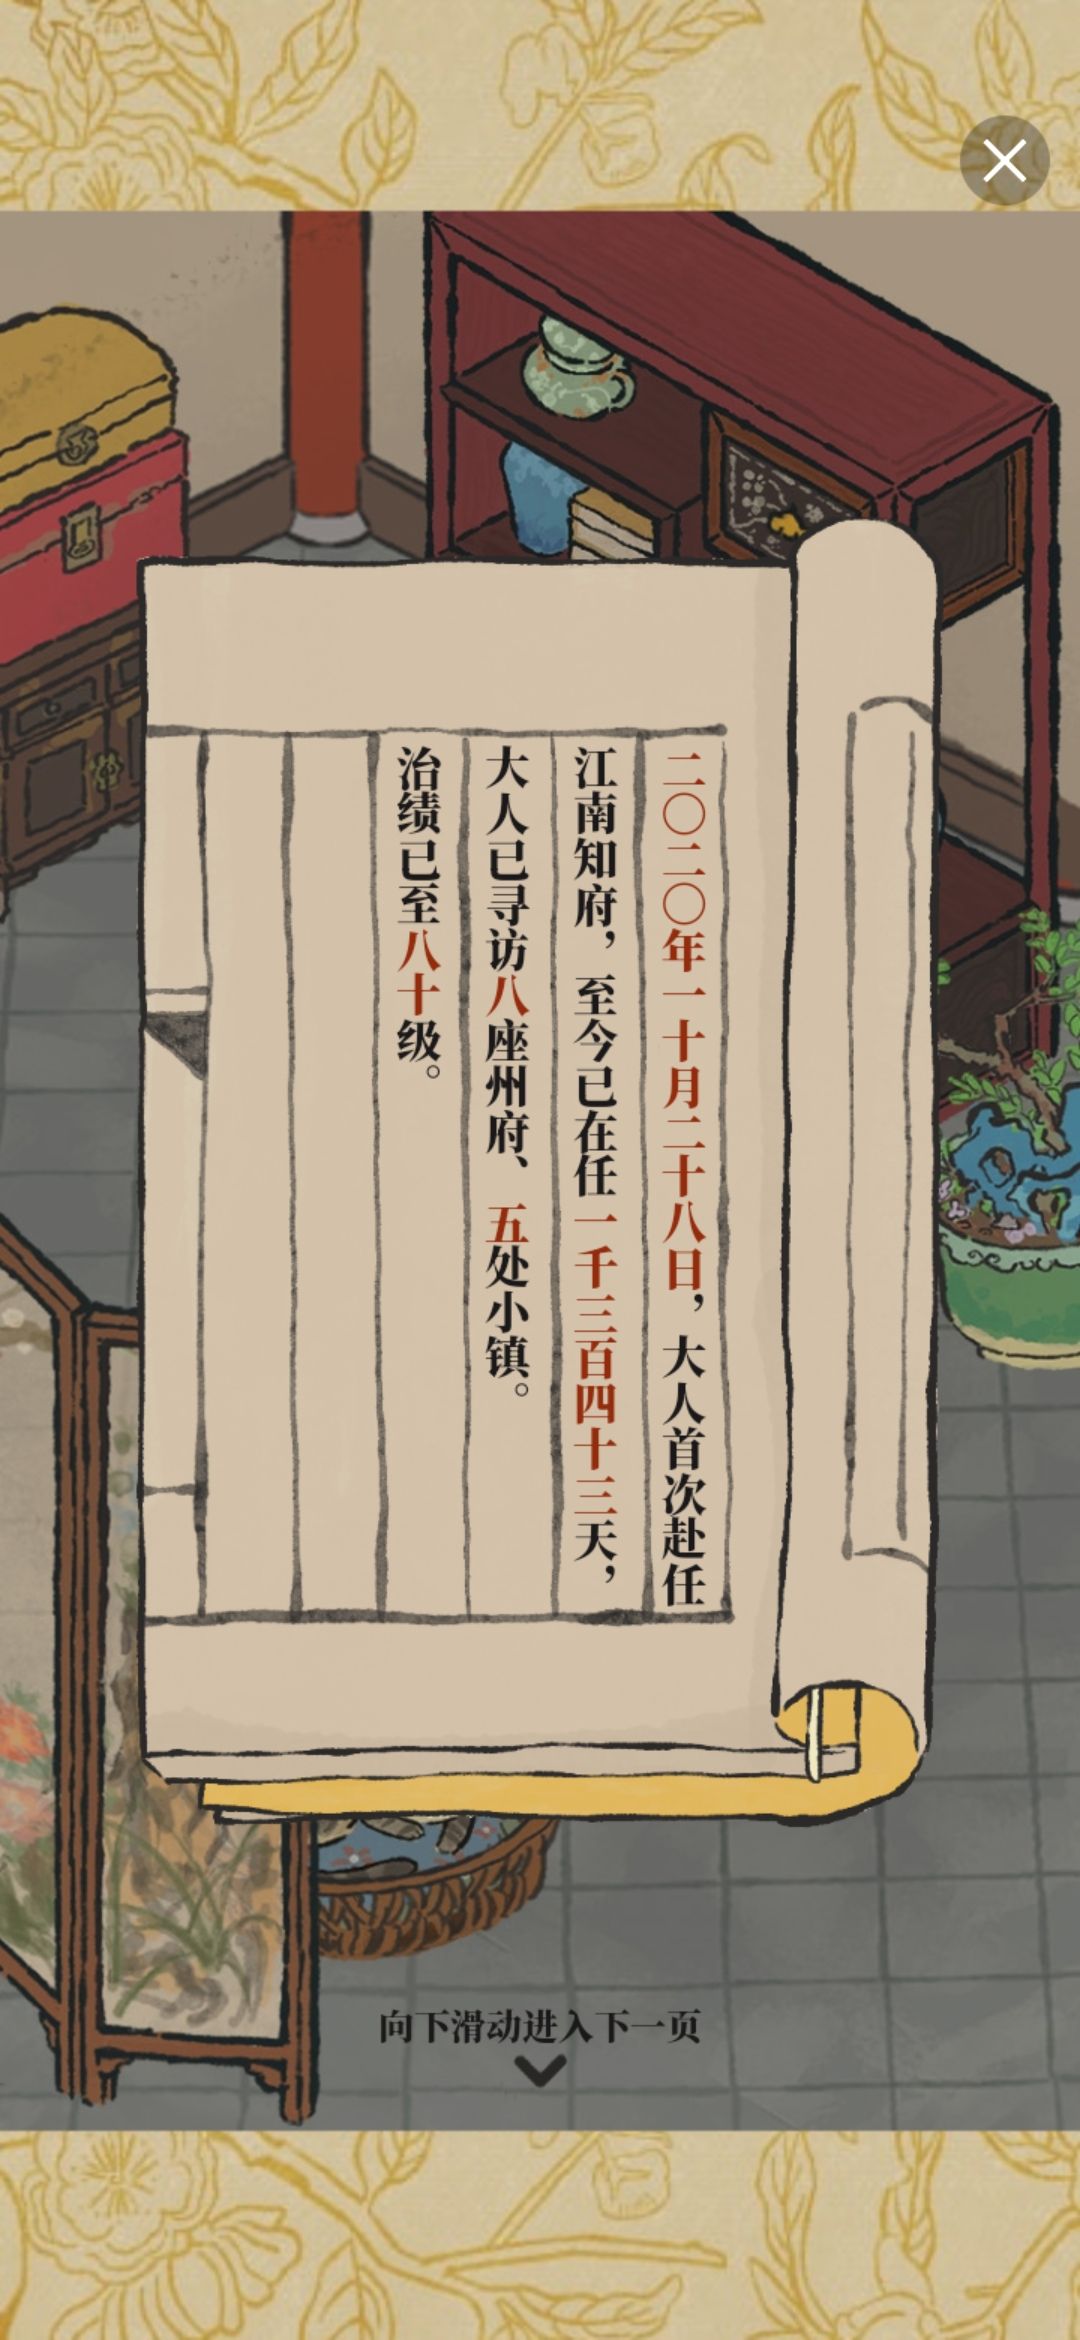 二〇二〇年一十月二十八日，大人首次赴任
江南知府，至今已在任一千三百四十三天，
大人已寻访八座州府、五处小镇。
治绩已至八十级。
向下滑动进入下一页